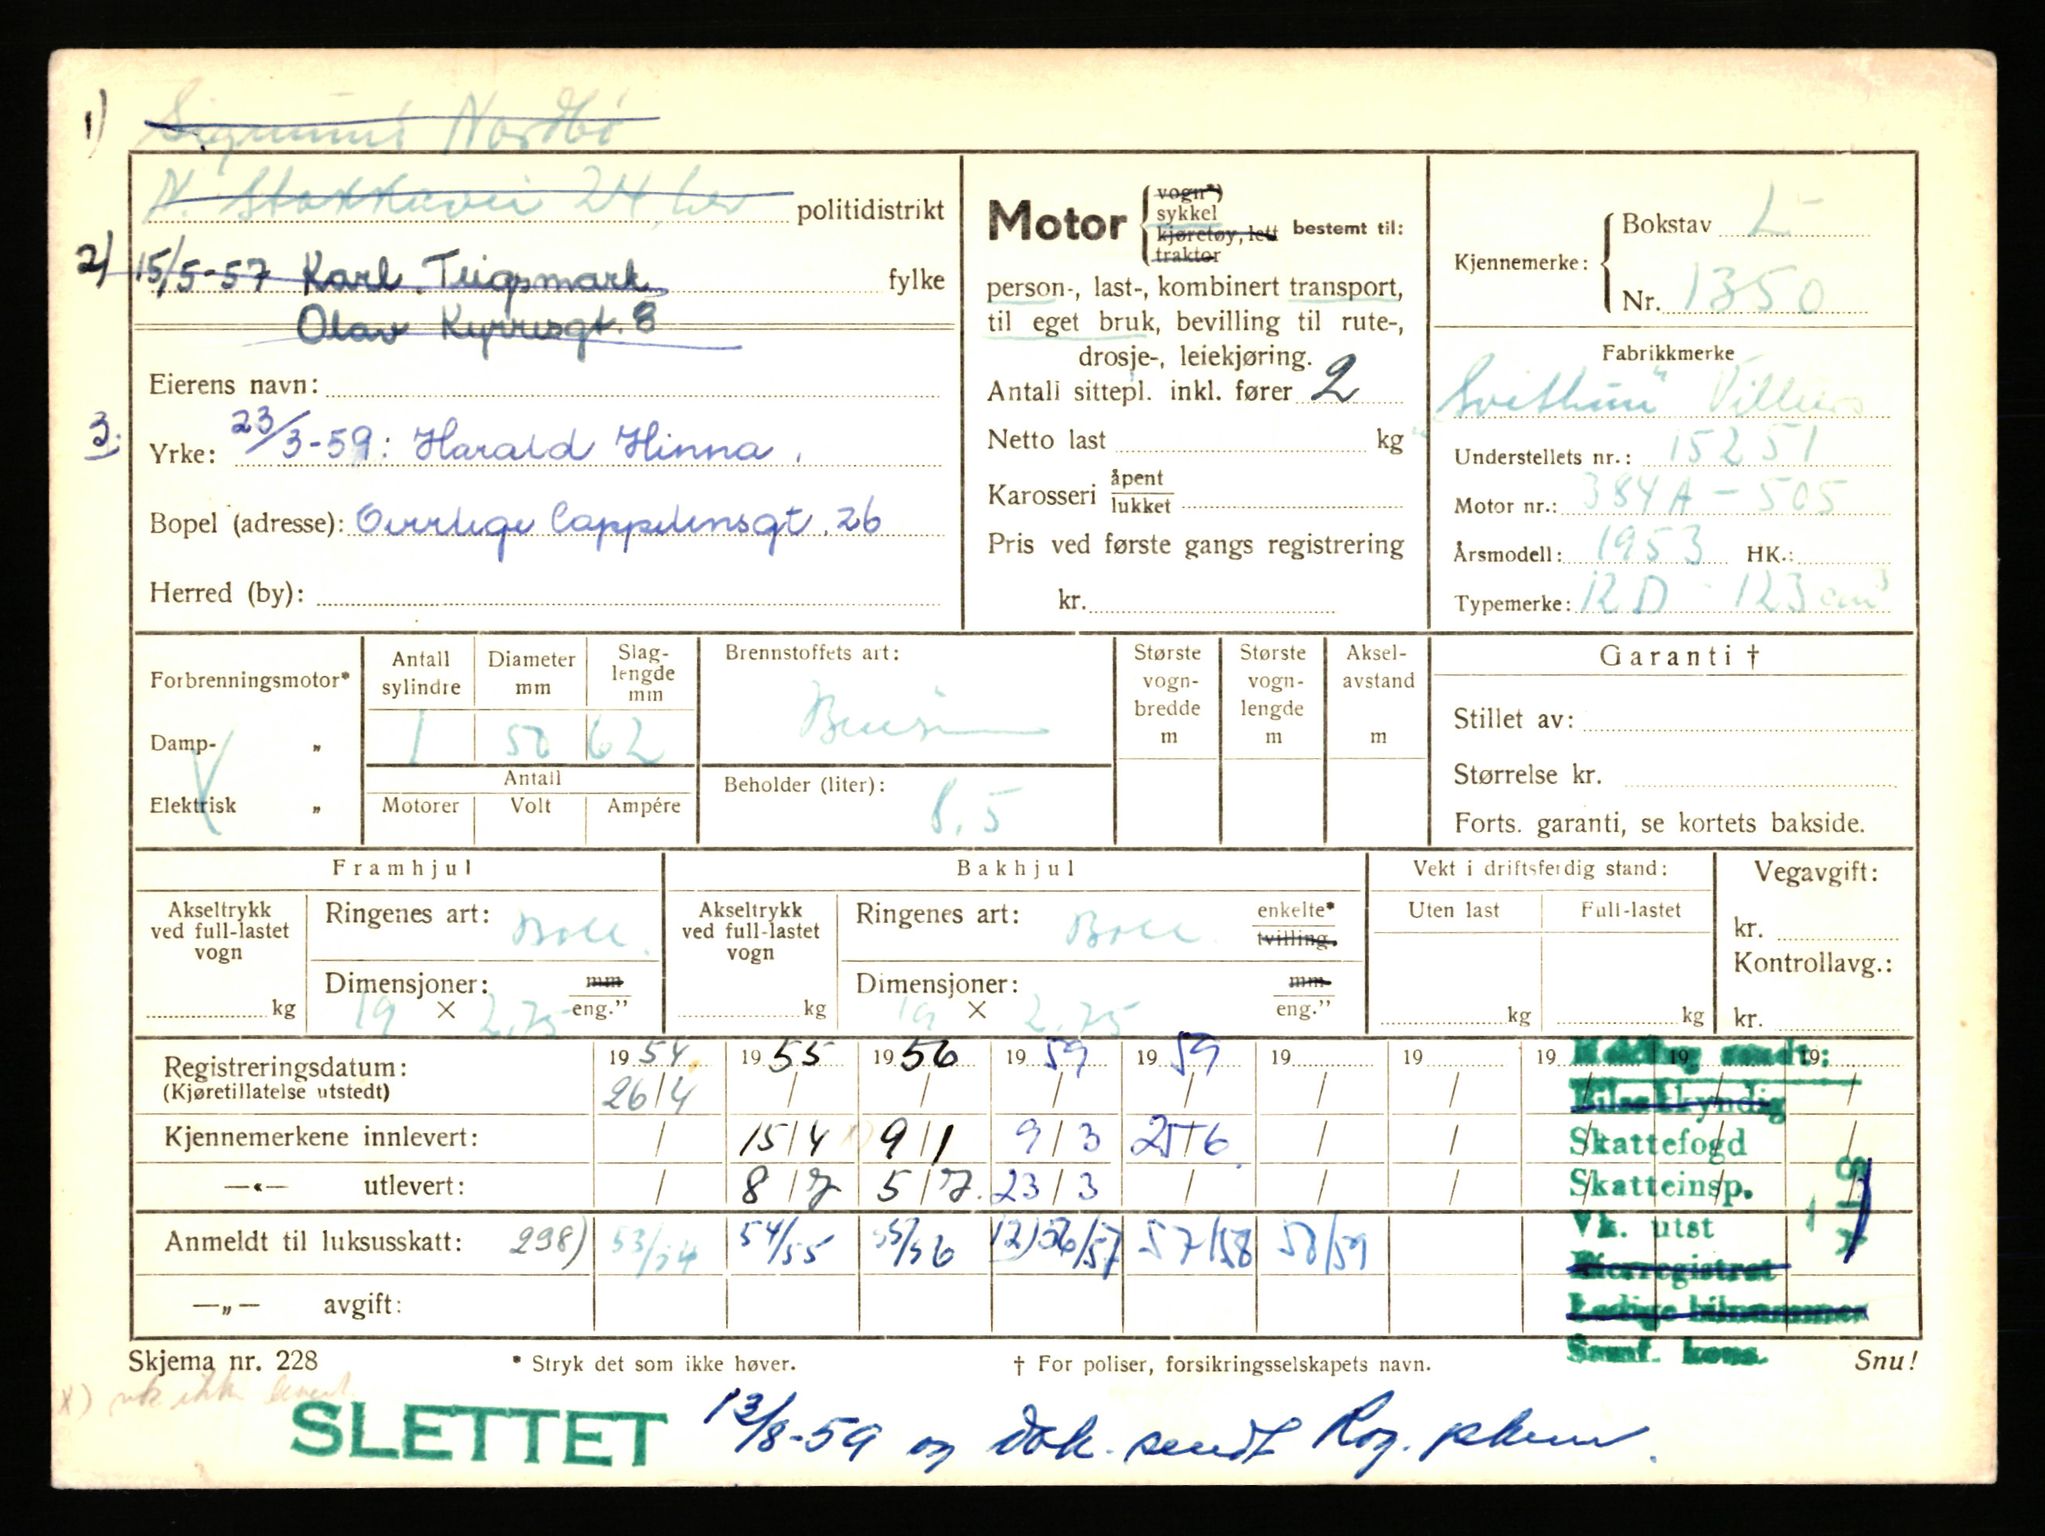 1) Sigmund Nordbö
N. Stokkavei 24, her politidistrikt
2) 15/5-57 Karl Teigsmark fylke
Olav Kyrresgt. 8
Eierens navn:
3. Yrke: 23/3-59: Harald Hinna.
Bopel (adresse): Overlege Cappelensgt. 26
Herred (by):
Motor vogn*) sykkel kjøretøy, lett traktor bestemt til:
person-, last-, kombinert transport,
til eget bruk, bevilling til rute-,
drosje-, leiekjøring.
Antall sittepl. inkl. fører 2
Netto last kg
Karosseri åpent lukket
Pris ved første gangs registrering
kr.
Kjennemerke: Bokstav L
Nr. 1350
Fabrikkmerke
"Svithun" Villiers
Understellets nr.: 15251
Motor nr.: 384A - 505
Årsmodell: 1953 HK.:
Typemerke: 12D 123 cm³
Forbrenningsmotor*
Damp- „
Elektrisk „
Antall sylindre 1
Diameter mm 50
Slaglengde mm 62
Antall
Motorer Volt Ampére
Brennstoffets art: Bensin
Beholder (liter): 8,5
Største vognbredde m
Største vognlengde m
Akselavstand m
Garanti †
Stillet av:
Størrelse kr.
Forts. garanti, se kortets bakside.
Framhjul
Akseltrykk ved full-lastet vogn kg
Ringenes art: Ball.
Dimensjoner: 19 × 2,75 mm eng.”
Bakhjul
Akseltrykk ved full-lastet vogn kg
Ringenes art: Ball. enkelte* tvilling.
Dimensjoner: 19 × 2,75 mm eng.”
Vekt i driftsferdig stand:
Uten last kg Full-lastet kg
Vegavgift:
kr.
Kontrollavg.:
kr.
Registreringsdatum: 1954 1955 1956 1959 1959 19 19 19 19 19
(Kjøretillatelse utstedt) 26/4 / / / / / / / / /
Kjennemerkene innlevert: / 15/4 9/1 9/3 25/6 / / / / /
—«— utlevert: / 8/7 5/7. 23/3 / / / / / /
Anmeldt til luksusskatt: 298) 53/54 54/55 55/56 12) 56/57 57/58 58/59
—„— avgift:
Melding sendt:
Bilsakkyndig
Skattefogd
Skatteinsp.
Vk. utst
Motorregistret
Ledige bilnummer
Samf. kons.
Skjema nr. 228
* Stryk det som ikke høver.
† For poliser, forsikringsselskapets navn.
Snu!
x) vk ikke levert
SLETTET 13/8-59 og dok. sendt Rog. pkam.